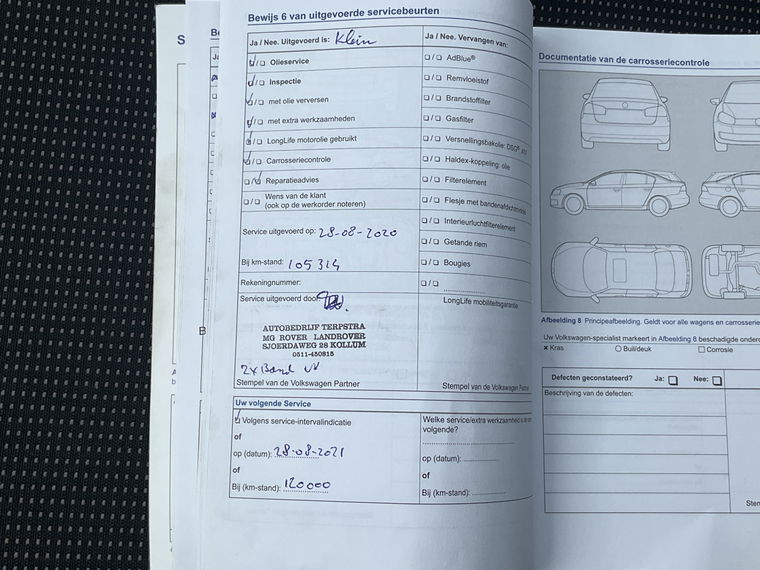 Bewijs 6 van uitgevoerde servicebeurten
Ja / Nee. Uitgevoerd is: Klein
Olieservice
Inspectie
met olie verversen
met extra werkzaamheden
LongLife motorolie gebruikt
Carrosseriecontrole
Reparatieadvies
Wens van de klant
(ook op de werkorder noteren)
Service uitgevoerd op: 28-08-2020
Bij km-stand: 105314
Rekeningnummer:
Service uitgevoerd door:
AUTOBEDRIJF TERPSTRA
MG ROVER LANDROVER
SJOERDAWEG 28 KOLLUM
0511-450815
2x Band VV
Stempel van de Volkswagen Partner
Ja / Nee. Vervangen van:
AdBlue®
Remvloeistof
Brandstoffilter
Gasfilter
Versnellingsbakolie: DSG®,
Haldex-koppeling: olie
Filterelement
Flesje met bandenafdichtmiddel
Interieurluchtfilterelement
Getande riem
Bougies
LongLife mobiliteitsgarantie
Stempel van de Volkswagen Partner
Uw volgende Service
Volgens service-intervalindicatie
of
op (datum): 28-08-2021
of
Bij (km-stand): 120000
Welke service/extra werkzaamheid is de
volgende?
op (datum):
of
Bij (km-stand):
Documentatie van de carrosseriecontrole
Afbeelding 8 Principeafbeelding. Geldt voor alle wagens en carrosserie
Uw Volkswagen-specialist markeert in Afbeelding 8 beschadigde onderd
x Kras
Buil/deuk
Corrosie
Defecten geconstateerd? Ja: Nee:
Beschrijving van de defecten:
Stem